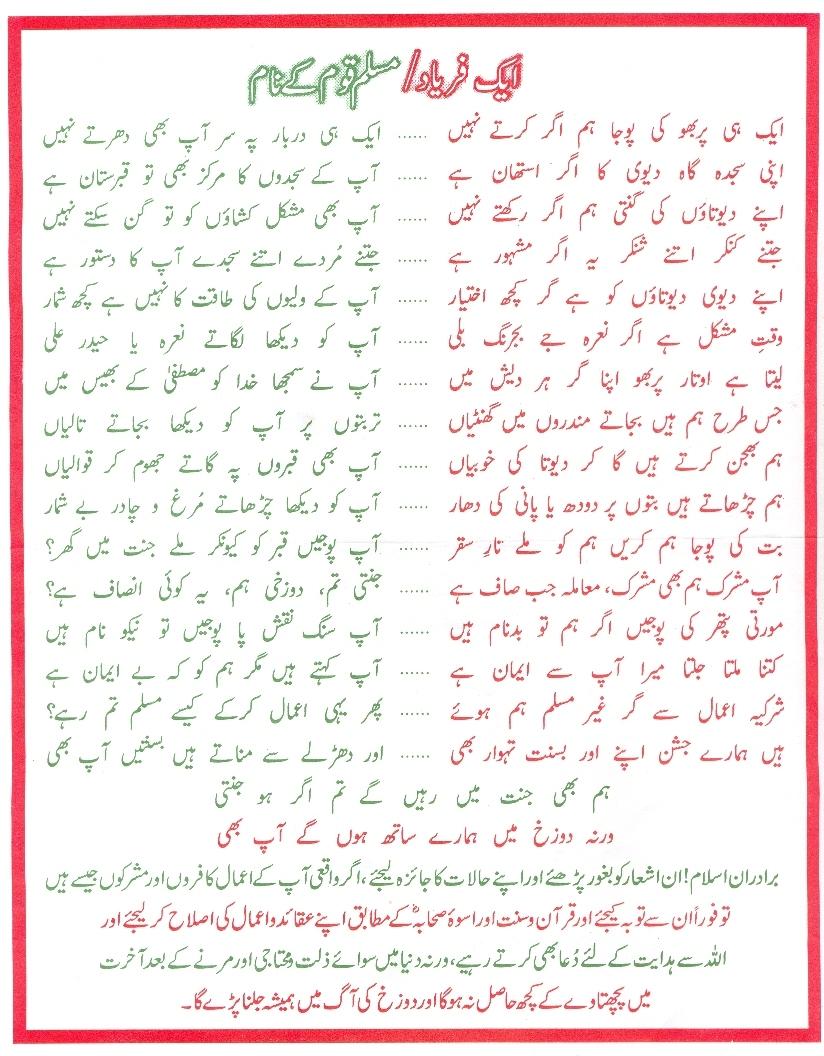 ایک فریاد/مسلم قوم کے نام
ایک ہی پربھو کی پوجا ہم اگر کرتے نہیں ...... ایک ہی دربار پہ سر آپ بھی دھرتے نہیں
اپنی سجدہ گاہ دیوی کا اگر استھان ہے ...... آپ کے سجدوں کا مرکز بھی تو قبرستان ہے
اپنے دیوتاؤں کی گنتی ہم اگر رکھتے نہیں ...... آپ بھی مشکل کشاؤں کو تو گن سکتے نہیں
جتنے کنکر اتنے شنکر یہ اگر مشہور ہے ...... جتنے مُردے اتنے سجدے آپ کا دستور ہے
اپنے دیوی دیوتاؤں کو ہے گر کچھ اختیار ...... آپ کے ولیوں کی طاقت کا نہیں ہے کچھ شمار
وقتِ مشکل ہے اگر نعرہ جے بجرنگ بلی ...... آپ کو دیکھا لگاتے نعرہ یا حیدر علی
لیتا ہے اوتار پربھو اپنا گر ہر دیش میں ...... آپ نے سمجھا خدا کو مصطفیٰ کے بھیس میں
جس طرح ہم ہیں بجاتے مندروں میں گھنٹیاں ...... تربتوں پر آپ کو دیکھا بجاتے تالیاں
ہم بھجن کرتے ہیں گا کر دیوتا کی خوبیاں ...... آپ بھی قبروں پہ گاتے جھوم کر قوالیاں
ہم چڑھاتے ہیں بتوں پر دودھ یا پانی کی دھار ...... آپ کو دیکھا چڑھاتے مُرغ و چادر بے شمار
بت کی پوجا ہم کریں ہم کو ملے نارِ سقر ...... آپ پوجیں قبر کو کیونکر ملے جنت میں گھر؟
آپ مشرک ہم بھی مشرک، معاملہ جب صاف ہے ...... جنتی تم، دوزخی ہم، یہ کوئی انصاف ہے؟
مورتی پتھر کی پوجیں اگر ہم تو بدنام ہیں ...... آپ سنگ نقش پا پوجیں تو نیکو نام ہیں
کتنا ملتا جلتا میرا آپ سے ایمان ہے ...... آپ کہتے ہیں مگر ہم کو کہ بے ایمان ہے
شرکیہ اعمال سے گر غیر مسلم ہم ہوئے ...... پھر یہی اعمال کرکے کیسے مسلم تم رہے؟
ہیں ہمارے جشن اپنے اور بسنت تہوار بھی ...... اور دھڑلے سے مناتے ہیں بسنتیں آپ بھی
ہم بھی جنت میں رہیں گے تم اگر ہو جنتی
ورنہ دوزخ میں ہمارے ساتھ ہوں گے آپ بھی
برادران اسلام! ان اشعار کو بغور پڑھئے اور اپنے حالات کا جائزہ لیجئے، اگر واقعی آپ کے اعمال کافروں اور مشرکوں جیسے ہیں
تو فوراً ان سے توبہ کیجئے اور قرآن و سنت اور اسوۂ صحابہؓ کے مطابق اپنے عقائد و اعمال کی اصلاح کر لیجئے اور
اللہ سے ہدایت کے لئے دُعا بھی کرتے رہیے، ورنہ دنیا میں سوائے ذلت و محتاجی اور مرنے کے بعد آخرت
میں پچھتاوے کے کچھ حاصل نہ ہوگا اور دوزخ کی آگ میں ہمیشہ جلنا پڑے گا۔